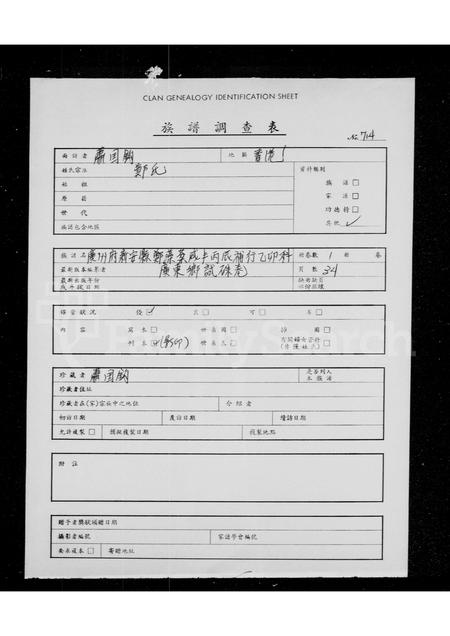 CLAN GENEALOGY IDENTIFICATION SHEET
族譜調查表
No. 714
面訪者 蕭国鈞 地區 香港
姓氏宗派 鄭氏 資料類別
始祖 族譜 □
原籍 家譜 □
世代 功德榜 □
族譜包含地區 其他 ✓
族譜名 廣州府新安縣鄭葉英咸丰丙辰補行乙卯科 卷數 1 冊 卷
最新版本編纂者 廣東鄉試硃卷 頁數 34
最新出版年份
或手抄日期
保管狀況 優 ✓ 良 □ 可 □ 劣 □
內容 寫本 □ 世系圖 □ 詩圖 □
刊本 □ (影印) 世系表 □
珍藏者 蕭国鈞 是否列入
本族譜
珍藏者住址
珍藏者在(家)宗族中之地位 介紹者
初訪日期 覆訪日期 續訪日期
允許複製 □ 攝擬複製日期 複製地點
附註
贈予者獎狀頒贈日期
攝影者編號 家譜學會編號
要求底本 □ 寄贈地址
FamilySearch